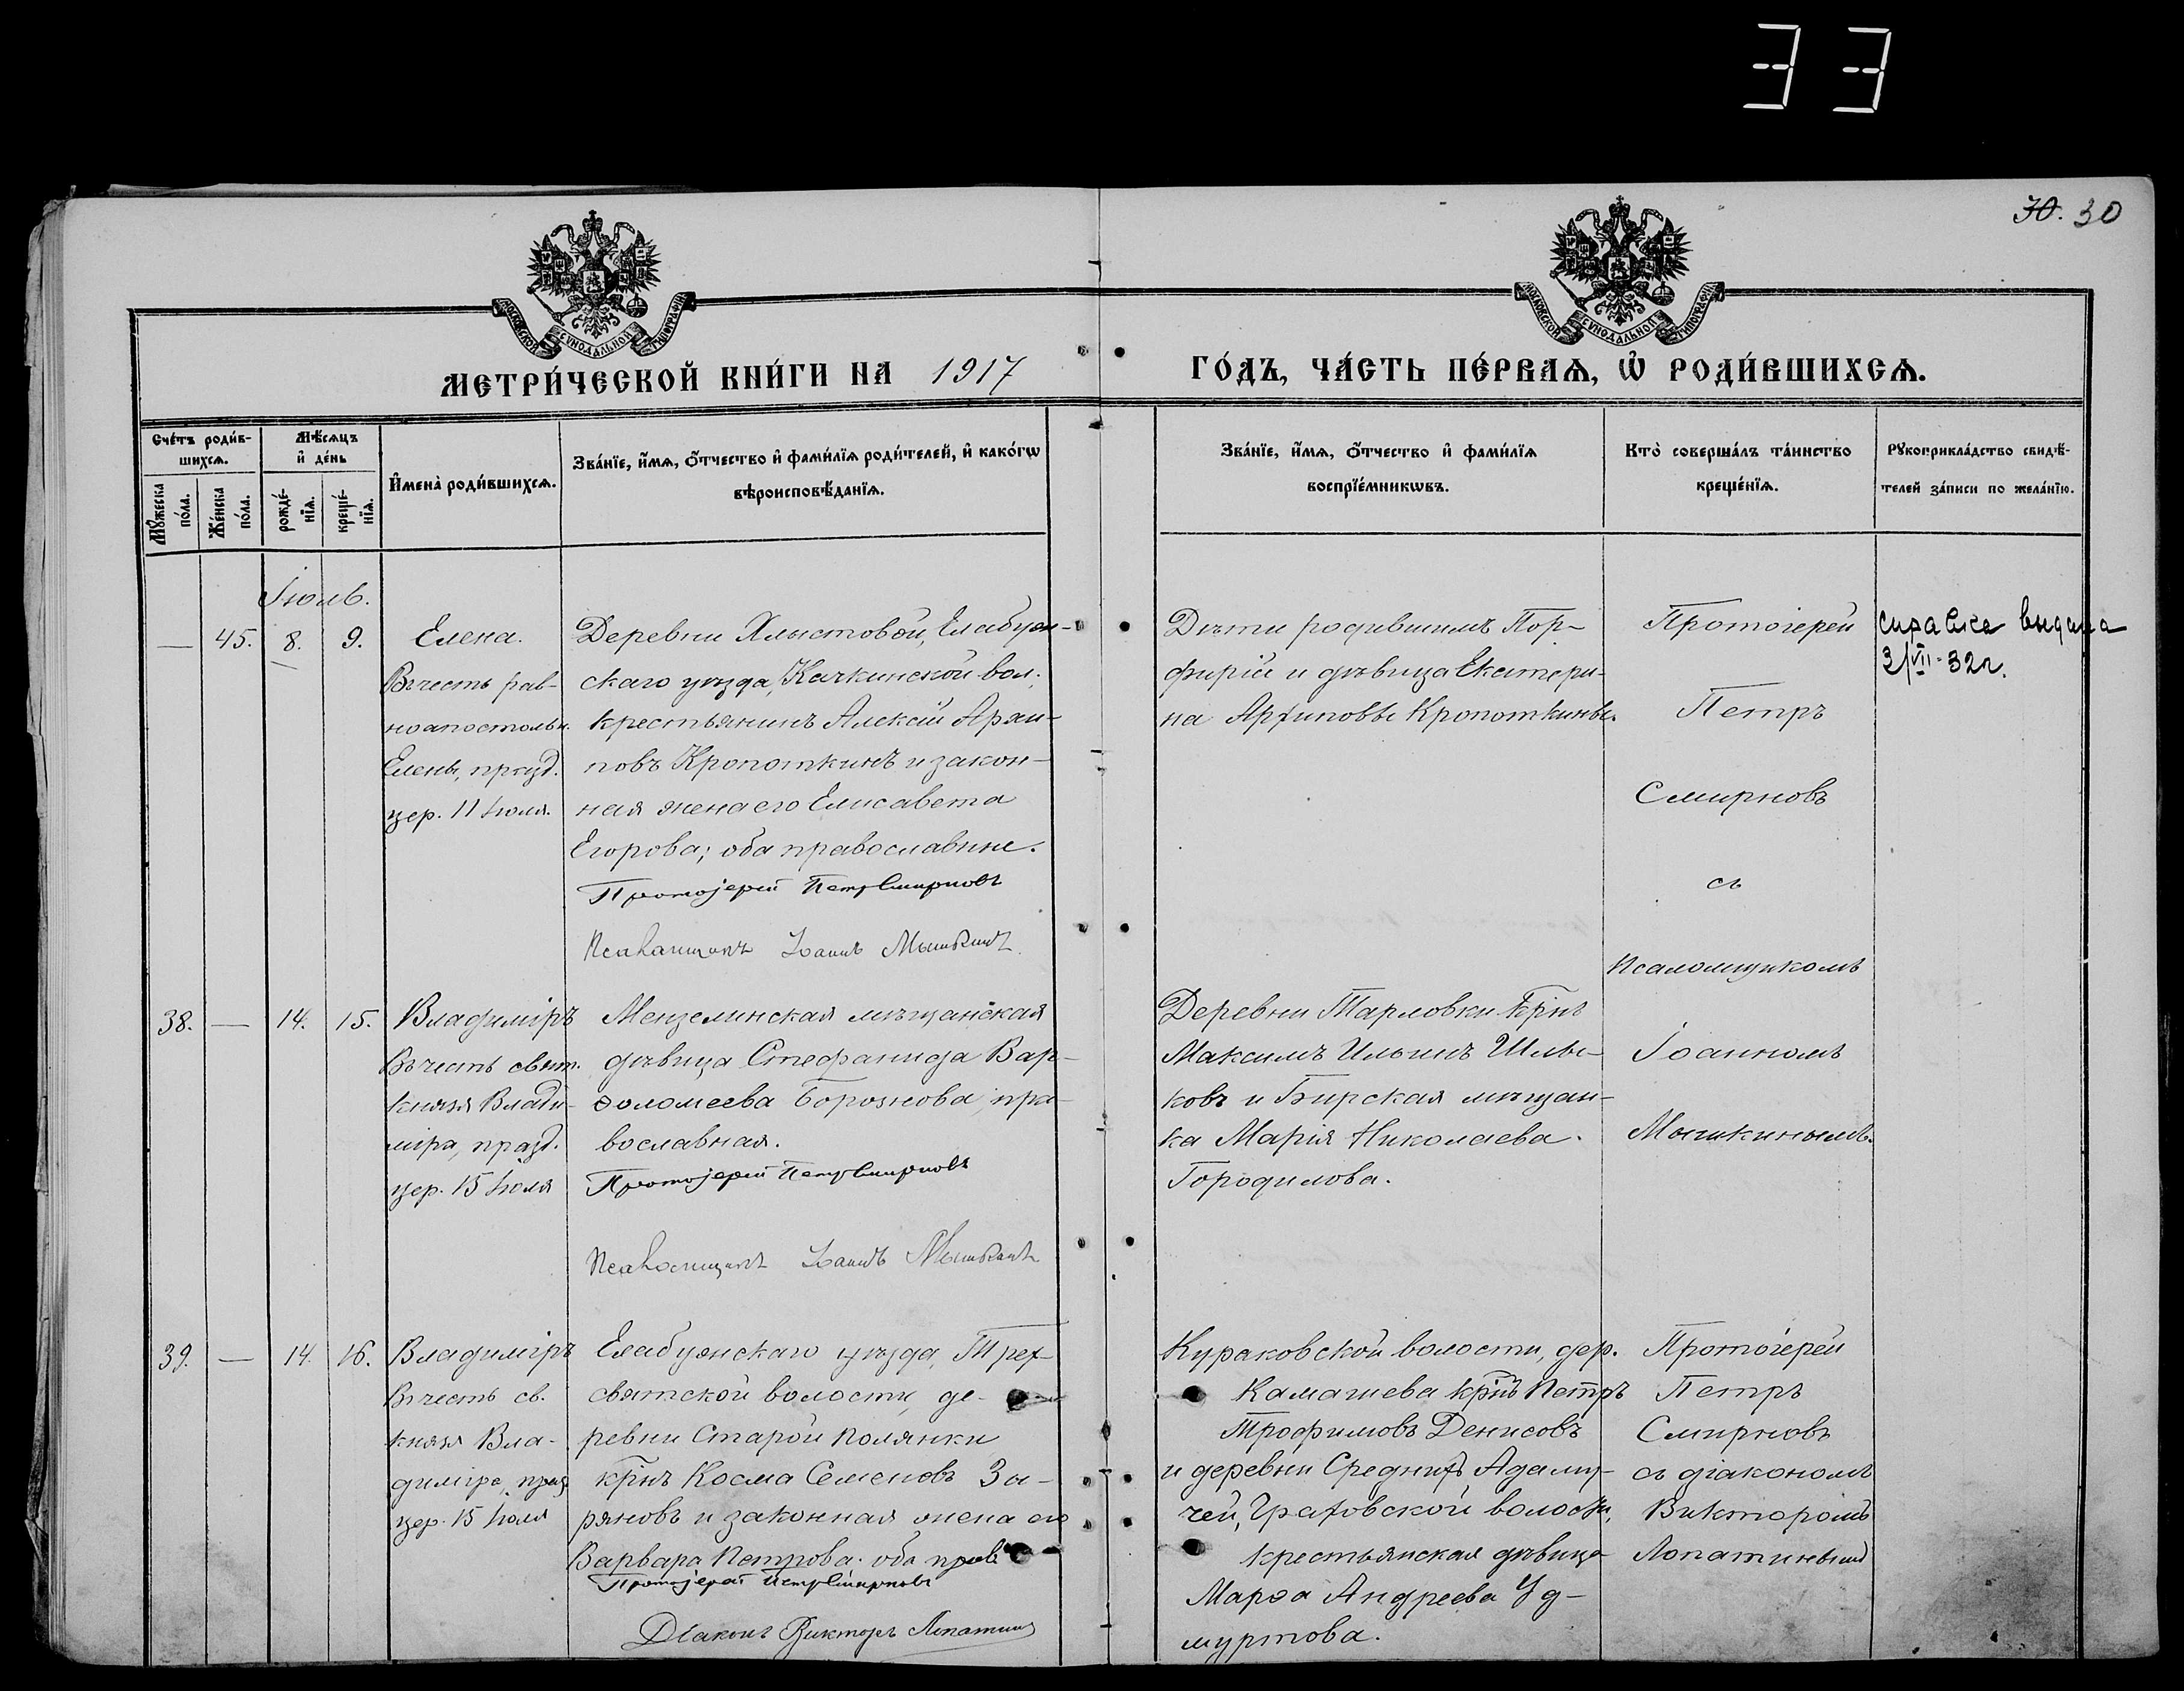 33
30. 30
МОСКОВСКОЙ СѴНОДАЛЬНОЙ ТИПОГРАФІИ
МОСКОВСКОЙ СѴНОДАЛЬНОЙ ТИПОГРАФІИ
МЕТРИ́ЧЕСКОЙ КНИ́ГИ НА 1917
ГО́ДЪ, ЧА́СТЬ ПЕ́РВАѦ, Ѽ РОДИ́ВШИХСѦ.
Сче́тъ роди́в-
шихсѧ.
Мꙋ́жеска
по́ла.
Же́нска
по́ла.
Мѣ́сѧцъ
и҆ де́нь
рожде́-
нїѧ.
креще́-
нїѧ.
И҆мена̀ роди́вшихсѧ.
Зва́нїе, и҆́мѧ, о҆́тчество и҆ фами́лїѧ роди́телей, и҆ како́гѡ
вѣроисповѣ́данїѧ.
Зва́нїе, и҆́мѧ, о҆́тчество и҆ фами́лїѧ
воспрїе́мникѡвъ.
Кто̀ соверша́лъ та́инство
креще́нїѧ.
Рꙋкоприкла́дство свидѣ́-
телей за́писи по жела́нїю.
Іюль.
— 45. 8. 9.
Елена.
Въ честь рав-
ноапостольн.
Елены, празд.
цер. 11 Іюля.
Деревни Хлыстовой, Елабуж-
скаго уѣзда, Качкинской вол.
крестьянинъ Алексій Архи-
повъ Кропоткинъ и закон-
ная жена его Елисавета
Егорова; оба православные.
Протоіерей Петръ Смирновъ
Псаломщикъ Іоаннъ Мышкинъ
Дѣти родившимъ Пор-
фирій и дѣвица Екатери-
на Архиповы Кропоткины.
Протоіерей
Петръ
Смирновъ
съ
псаломщикомъ
Іоанномъ
Мышкинымъ.
справка выдана
3/VII-32г.
38. — 14. 15.
Владиміръ
Въ честь свят.
князя Влади-
міра, празд.
цер. 15 Іюля
Мензелинская мѣщанская
дѣвица Стефанида Вар-
ѳоломеева Борознова, пра-
вославная.
Протоіерей Петръ Смирновъ
Псаломщикъ Іоаннъ Мышкинъ
Деревни Тарловки крнъ
Максимъ Ильинъ Шлы-
ковъ и Бирская мѣщан-
ка Марія Николаева
Городилова.
39. — 14. 16.
Владиміръ
Въ честь св.
князя Вла-
диміра, празд
цер. 15 Іюля
Елабужскаго уѣзда, Трех-
святской волости, де-
ревни Старой Полянки
крнъ Косма Семеновъ За-
ряновъ и законная жена его
Варвара Петрова. оба прав
Протоіерей Петръ Смирновъ
Діаконъ Викторъ Лопатинъ
Кураковской волости, дер.
Камашева крнъ Петръ
Трофимовъ Денисовъ
и деревни Среднихъ Адаму-
чей, Граховской волости,
крестьянская дѣвица
Марѳа Андреева Уд-
муртова.
Протоіерей
Петръ
Смирновъ
съ діакономъ
Викторомъ
Лопатинымъ